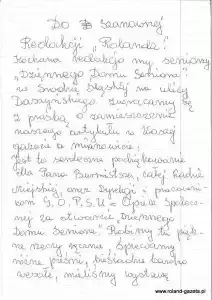 Do Szanownej
Redakcji „Rolanda".
Kochana Redakcjo my, seniorzy
„Dziennego Domu Seniora"
w Środzie Śląskiej na ulicy
Daszyńskiego zwracamy się
z prośbą o zamieszczenie
naszego artykułu w Waszej
gazecie a mianowicie;
Jest to serdeczne podziękowanie
dla Pana Burmistrza, całej Radzie
Miejskiej, oraz Dyrekcji i pracowni-
kom G.O.P.S.U. Opieki Społecz-
nej za otwarcie „Dziennego
Domu Seniora". Robimy tu pięk-
ne rzeczy ręczne, śpiewamy
różne pieśni, biesiadne bardzo
wesołe, mieliśmy wystawę
www.roland-gazeta.pl